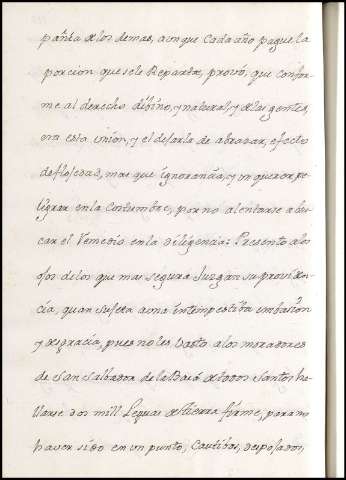 pañia de los demas, aonque Cada año pague la
porcion que se le Reparte, provó, que confor-
me al derecho dibino, y natural, y de las gentes,
era esta union, y el dejarla de abrazar, efecto
de flojedad, mas que ignorancia, y un querer pe-
ligrar en la Costumbre, por no alentarse a bus-
car el Remedio en la diligencia: Presento a los
ojos de los que mas segura Juzgan su providen-
cia, quan sujeta a una intempestiba imbasion
y desgracia, pues no les basto a los moradores
de San Salbador de la Baia de todos Santos ha-
llarse dos mill Leguas de tierra firme, para no
haver sido en un punto, Cautibos, despojados,